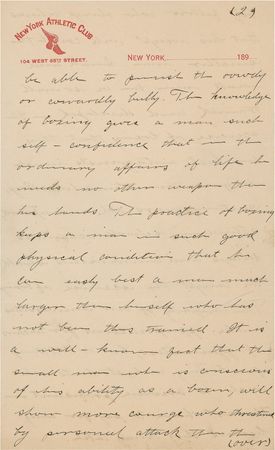 (29
NEW YORK ATHLETIC CLUB
104 WEST 55TH STREET.
NEW YORK 189
be able to punish the rowdy
or cowardly bully. The knowledge
of boxing gives a man such
self-confidence that in the
ordinary affairs of life he
needs no other weapon than
his hands. The practice of boxing
keeps a man in such good
physical condition that he
can easly best a man much
larger than himself who has
not been thus trained. It is
a well-known fact that the
small man who is conscious
of his ability as a boxer, will
show more courage who threatened
by personal attack than the
(over)